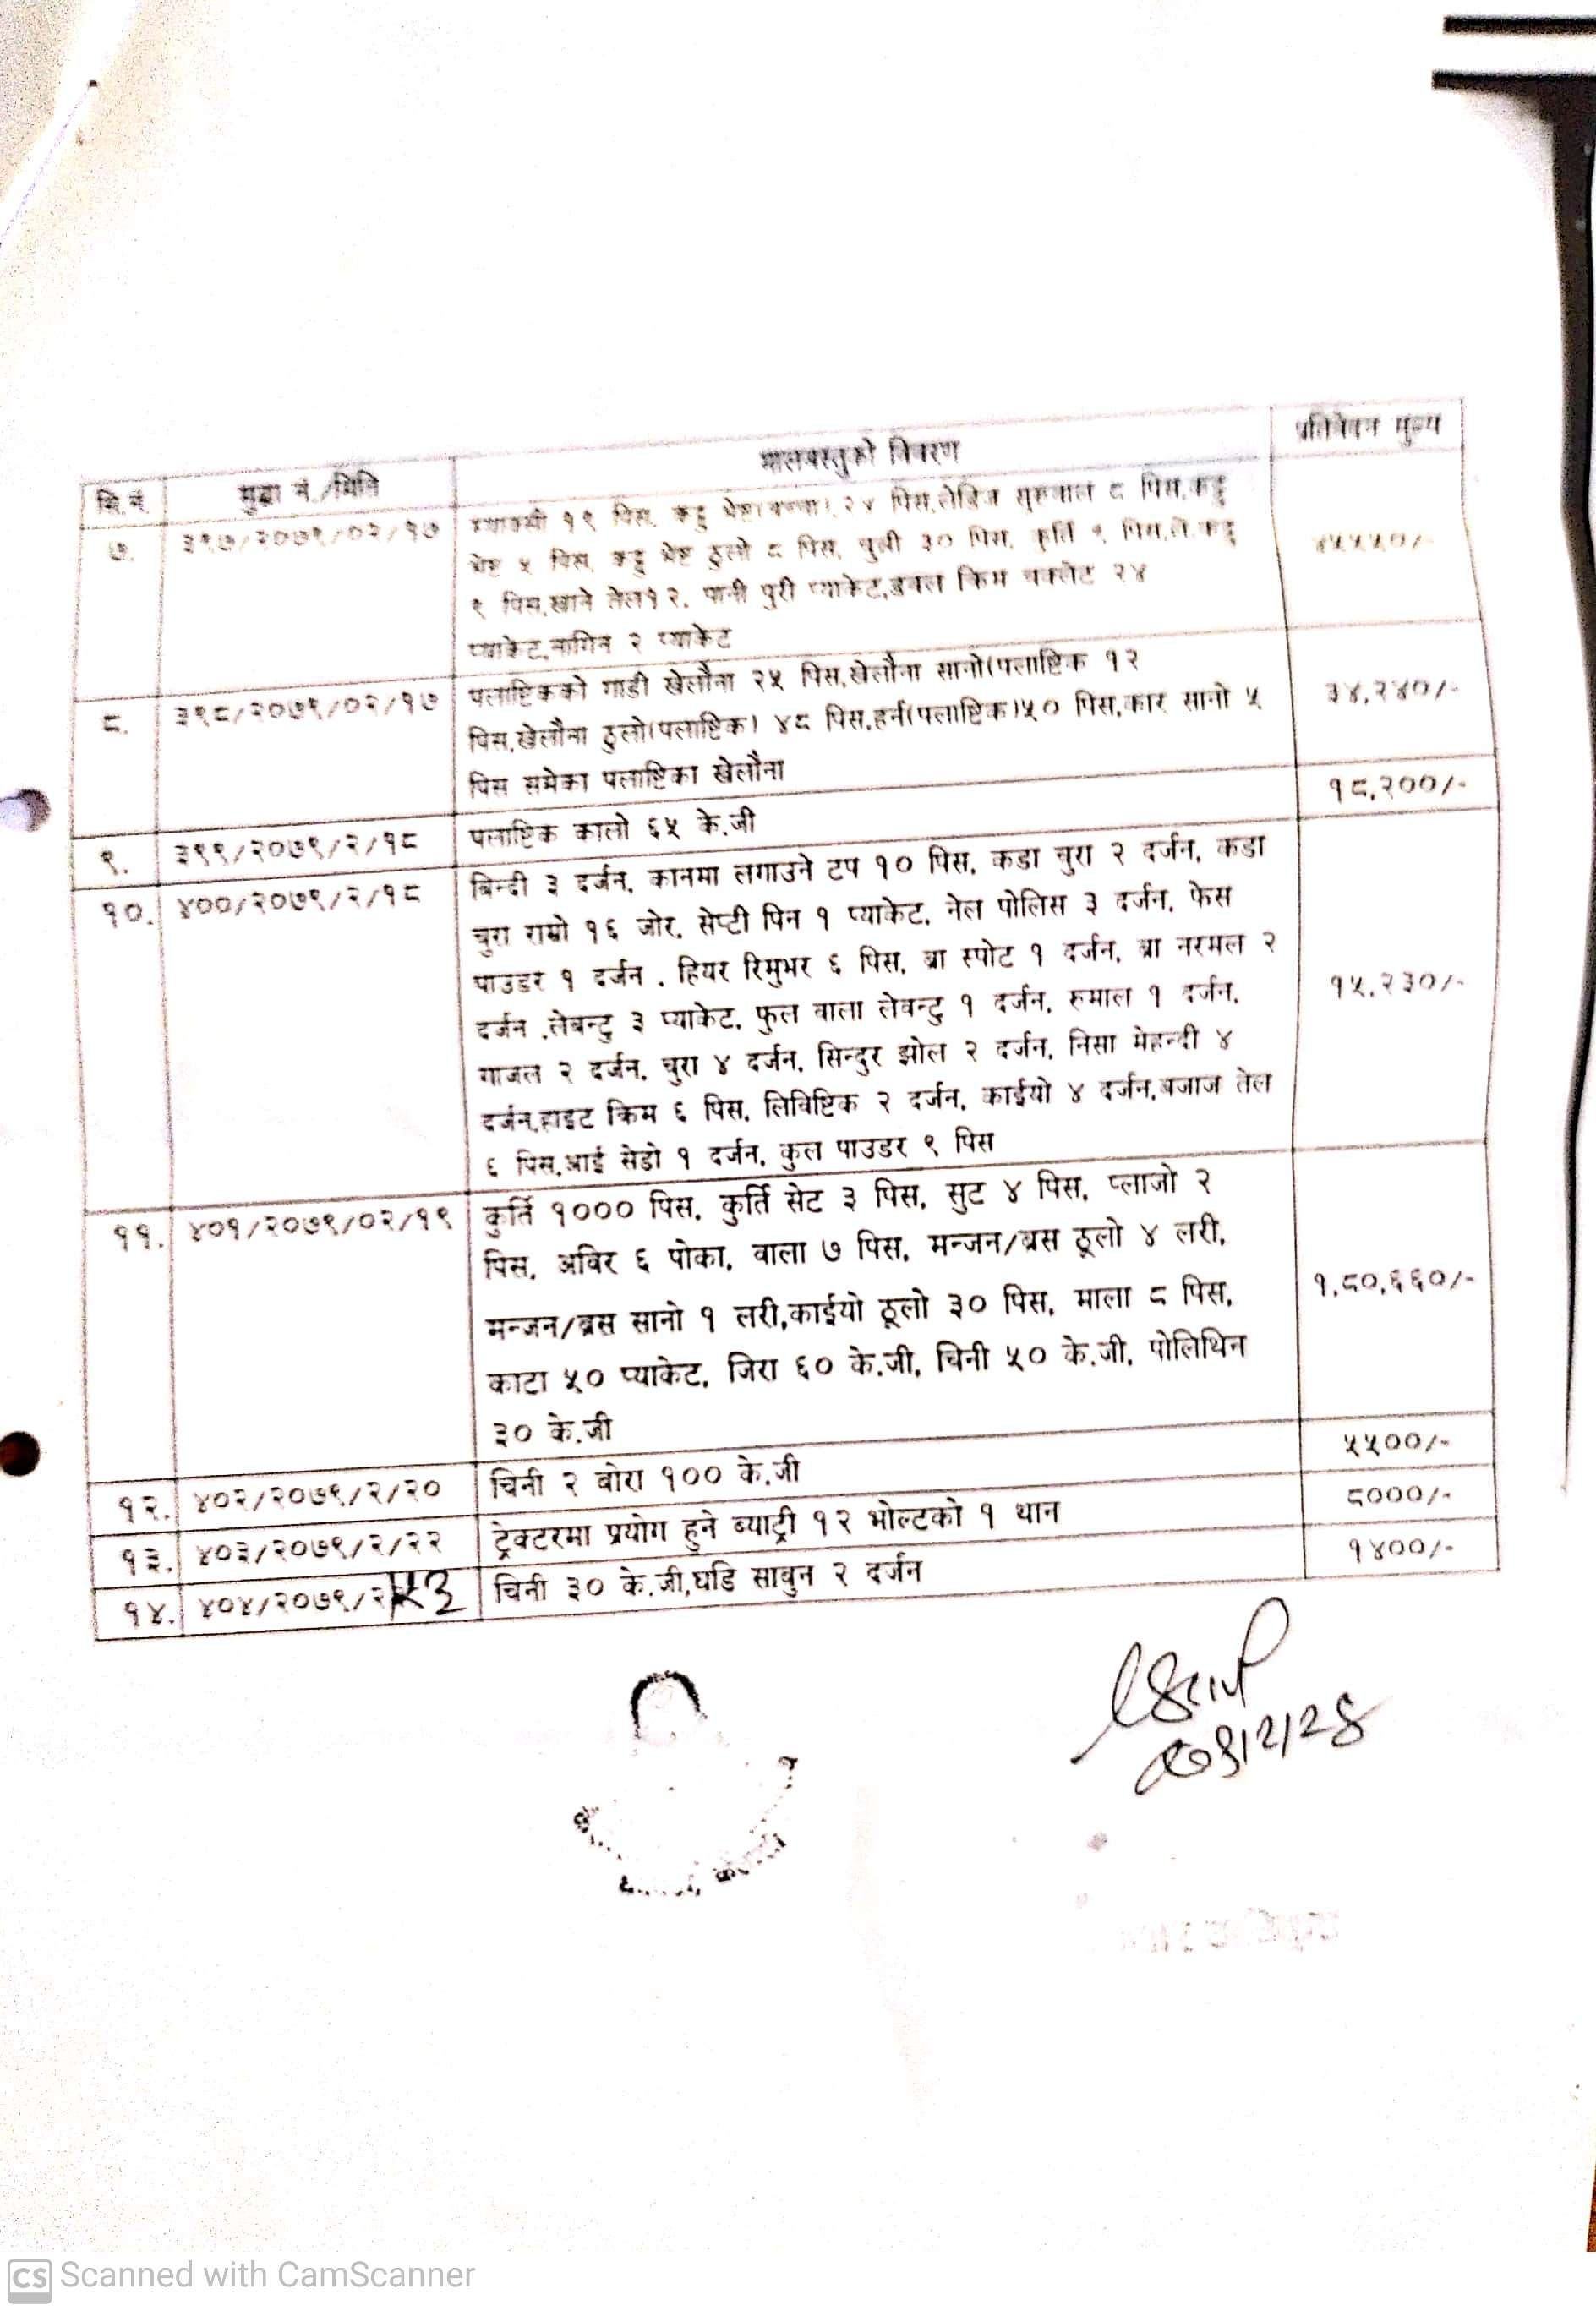 सि.नं. मुद्दा नं./मिति मालवस्तुको विवरण प्रतिवेदन मुल्य
७. ३९७/२०७९/०२/१७ म्याक्सी १९ पिस, कट्टु भेष्ट(बच्चा) २४ पिस,लेडिज सुरुवाल ८ पिस,कट्टु
भेष्ट ५ पिस, कट्टु भेष्ट ठुलो ८ पिस, चुन्नी ३० पिस, कुर्ति १ पिस,ले.कट्टु
१ पिस,खाने तेल१२, पानी पुरी प्याकेट,डबल क्रिम चक्लेट २४
प्याकेट,नागिन २ प्याकेट
४५५५०/-
८. ३९८/२०७९/०२/१७ पलाष्टिकको गाडी खेलौना २५ पिस,खेलौना सानो(पलाष्टिक १२
पिस,खेलौना ठुलो(पलाष्टिक) ४८ पिस,हर्न(पलाष्टिक)५० पिस,कार सानो ५
पिस समेका पलाष्टिका खेलौना
३४,२४०/-
९. ३९९/२०७९/२/१८ पलाष्टिक कालो ६५ के.जी १८,२००/-
१०. ४००/२०७९/२/१८ बिन्दी ३ दर्जन, कानमा लगाउने टप १० पिस, कडा चुरा २ दर्जन, कडा
चुरा राम्रो १६ जोर, सेप्टी पिन १ प्याकेट, नेल पोलिस ३ दर्जन, फेस
पाउडर १ दर्जन , हियर रिमुभर ६ पिस, ब्रा स्पोट १ दर्जन, ब्रा नरमल २
दर्जन ,लेबन्टु ३ प्याकेट, फुल वाला लेवन्टु १ दर्जन, रुमाल १ दर्जन,
गाजल २ दर्जन, चुरा ४ दर्जन, सिन्दुर झोल २ दर्जन, निसा मेहन्दी ४
दर्जन,हाइट क्रिम ६ पिस, लिविष्टिक २ दर्जन, काईयो ४ दर्जन,बजाज तेल
६ पिस,आई सेडो १ दर्जन, कुल पाउडर ९ पिस
१५,२३०/-
११. ४०१/२०७९/०२/१९ कुर्ति १००० पिस, कुर्ति सेट ३ पिस, सुट ४ पिस, प्लाजो २
पिस, अविर ६ पोका, वाला ७ पिस, मन्जन/ब्रस ठूलो ४ लरी,
मन्जन/ब्रस सानो १ लरी,काईयो ठूलो ३० पिस, माला ८ पिस,
काटा ५० प्याकेट, जिरा ६० के.जी, चिनी ५० के.जी, पोलिथिन
३० के.जी
१,८०,६६०/-
१२. ४०२/२०७९/२/२० चिनी २ बोरा १०० के.जी ५५००/-
१३. ४०३/२०७९/२/२२ ट्रेक्टरमा प्रयोग हुने ब्याट्री १२ भोल्टको १ थान ८०००/-
१४. ४०४/२०७९/२/२३ चिनी ३० के.जी,घडि साबुन २ दर्जन १४००/-
CS Scanned with CamScanner